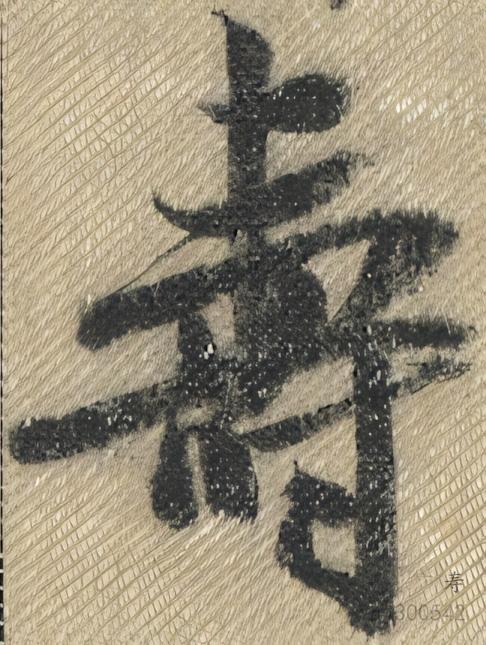 寿
寿
300542